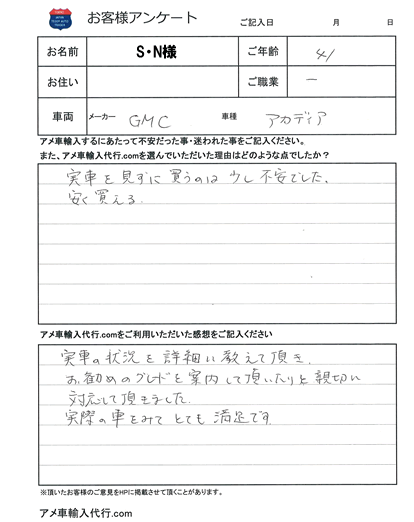 お客様アンケート
ご記入日 月 日
お名前 S・N様 ご年齢 41
お住い ご職業 ー
車両 メーカー GMC 車種 アカディア
アメ車輸入するにあたって不安だった事・迷われた事をご記入ください。
また、アメ車輸入代行.comを選んでいただいた理由はどのような点でしたか？
実車を見ずに買うのは少し不安でした、
安く買える.
アメ車輸入代行.comをご利用いただいた感想をご記入ください
実車の状況を詳細に教えて頂き、
お勧めのグレードを案内して頂いたりと親切に
対応して頂きました.
実際の車をみてとても満足です.
※頂いたお客様のご意見をHPに掲載させて頂くことがあります。
アメ車輸入代行.com